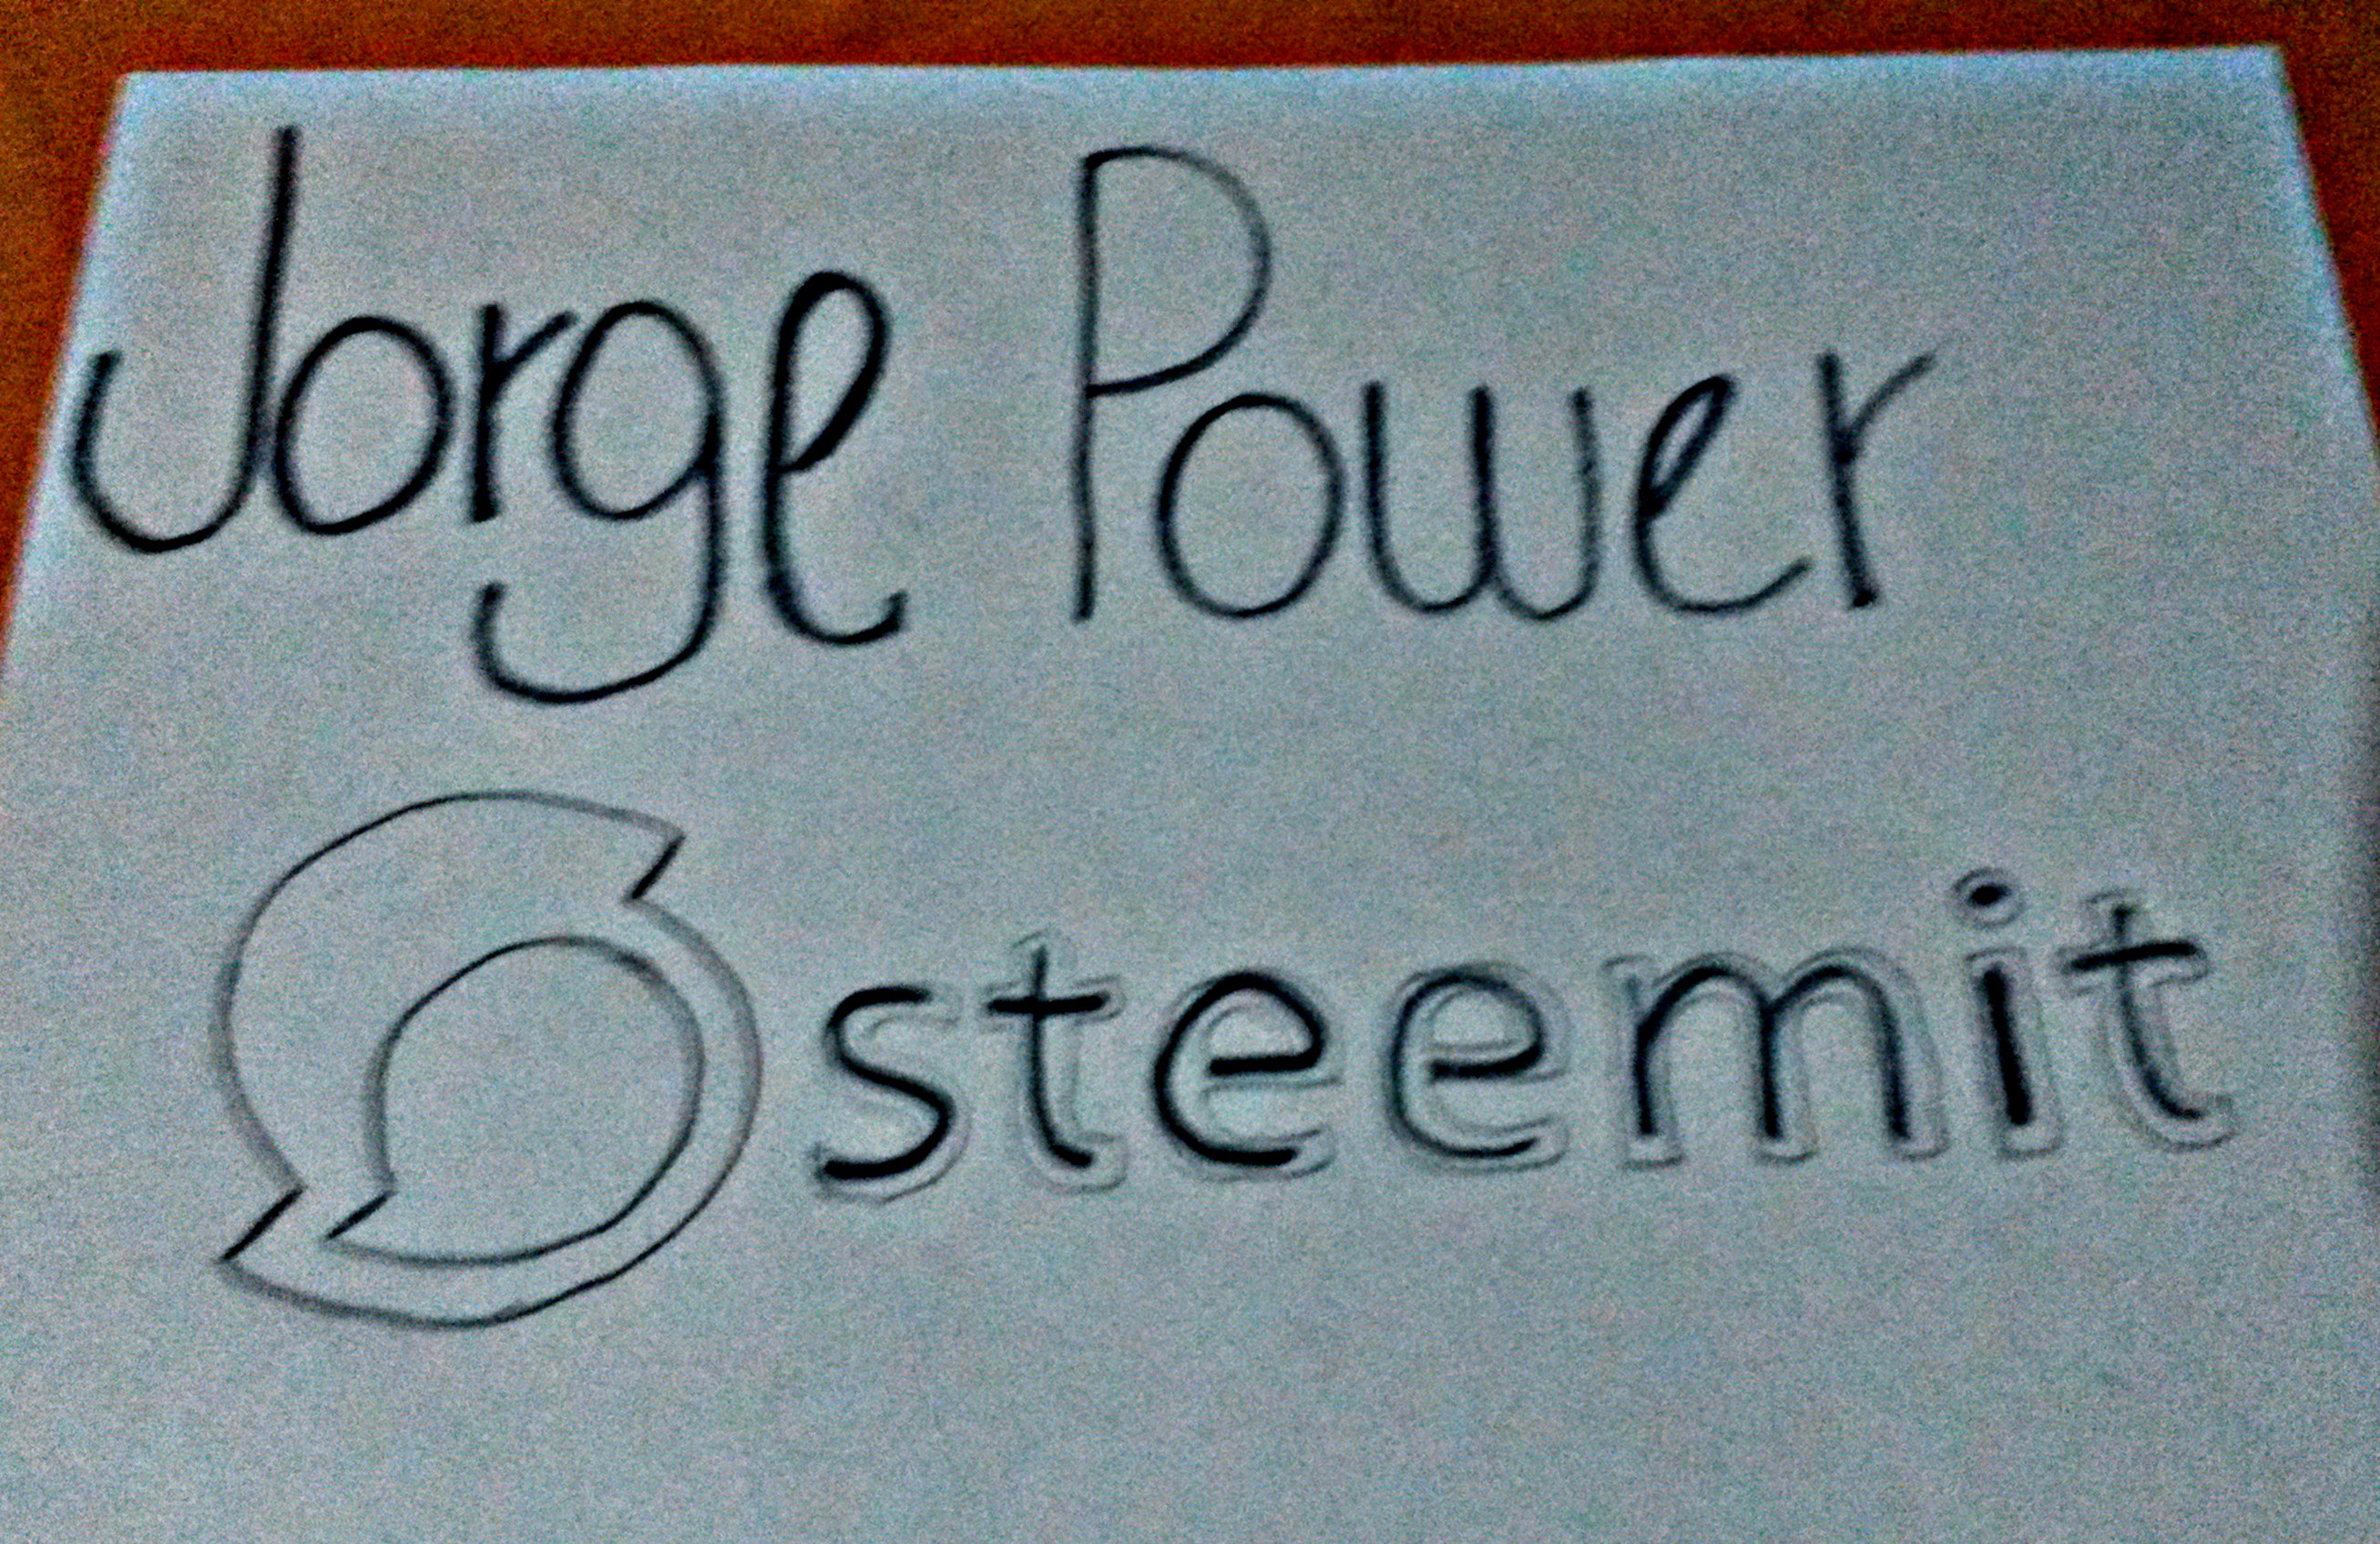 Jorge Power
steemit